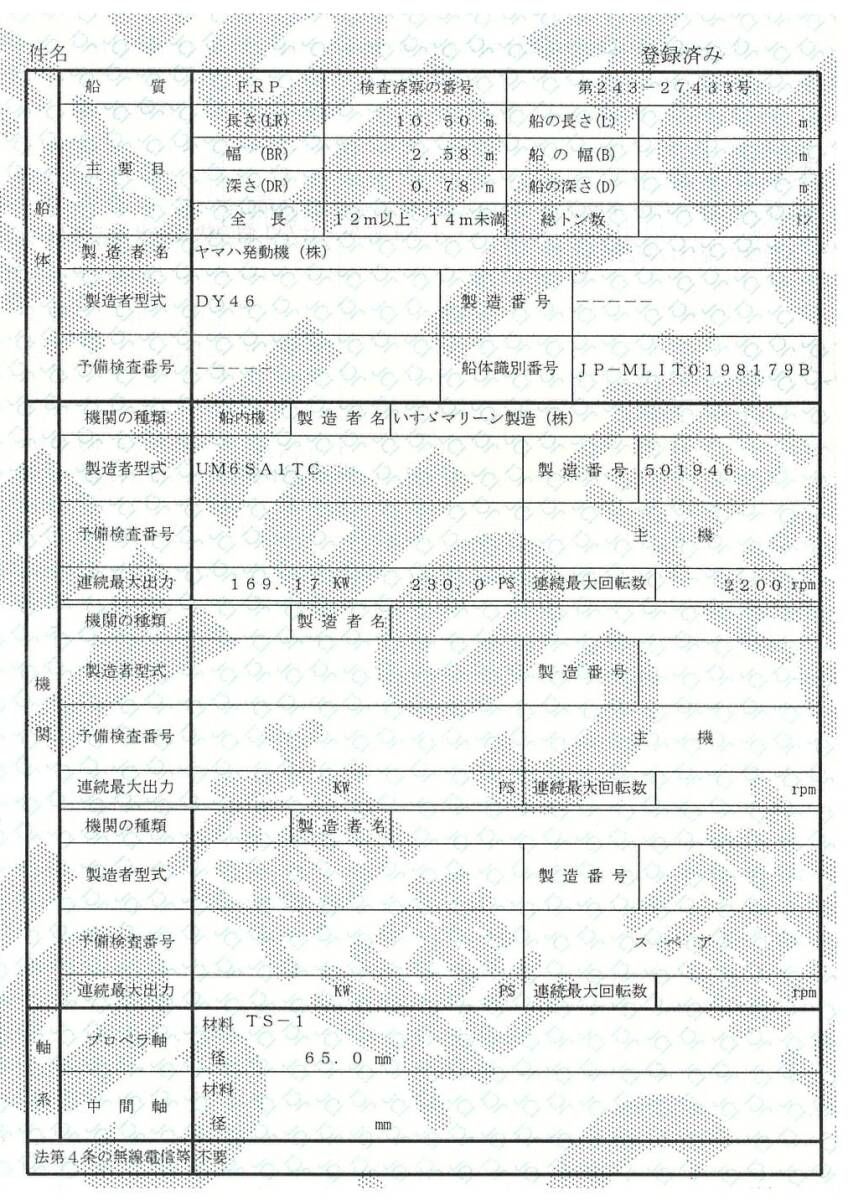 件名 登録済み
船体 船質 FRP 検査済票の番号 第243-27433号
主要目 長さ(LR) 10.50 m 船の長さ(L) m
幅 (BR) 2.58 m 船の幅(B) m
深さ(DR) 0.78 m 船の深さ(D) m
全長 12m以上 14m未満 総トン数 トン
製造者名 ヤマハ発動機(株)
製造者型式 DY46 製造番号 -----
予備検査番号 ----- 船体識別番号 JP-MLIT0198179B
機関 機関の種類 船内機 製造者名 いすゞマリーン製造(株)
製造者型式 UM6SA1TC 製造番号 501946
予備検査番号 主機
連続最大出力 169.17 KW 230.0 PS 連続最大回転数 2200 rpm
機関の種類 製造者名
製造者型式 製造番号
予備検査番号 主機
連続最大出力 KW PS 連続最大回転数 rpm
機関の種類 製造者名
製造者型式 製造番号
予備検査番号 スペア
連続最大出力 KW PS 連続最大回転数 rpm
軸系 プロペラ軸 材料 TS-1
径 65.0 mm
中間軸 材料
径 mm
法第4条の無線電信等 不要